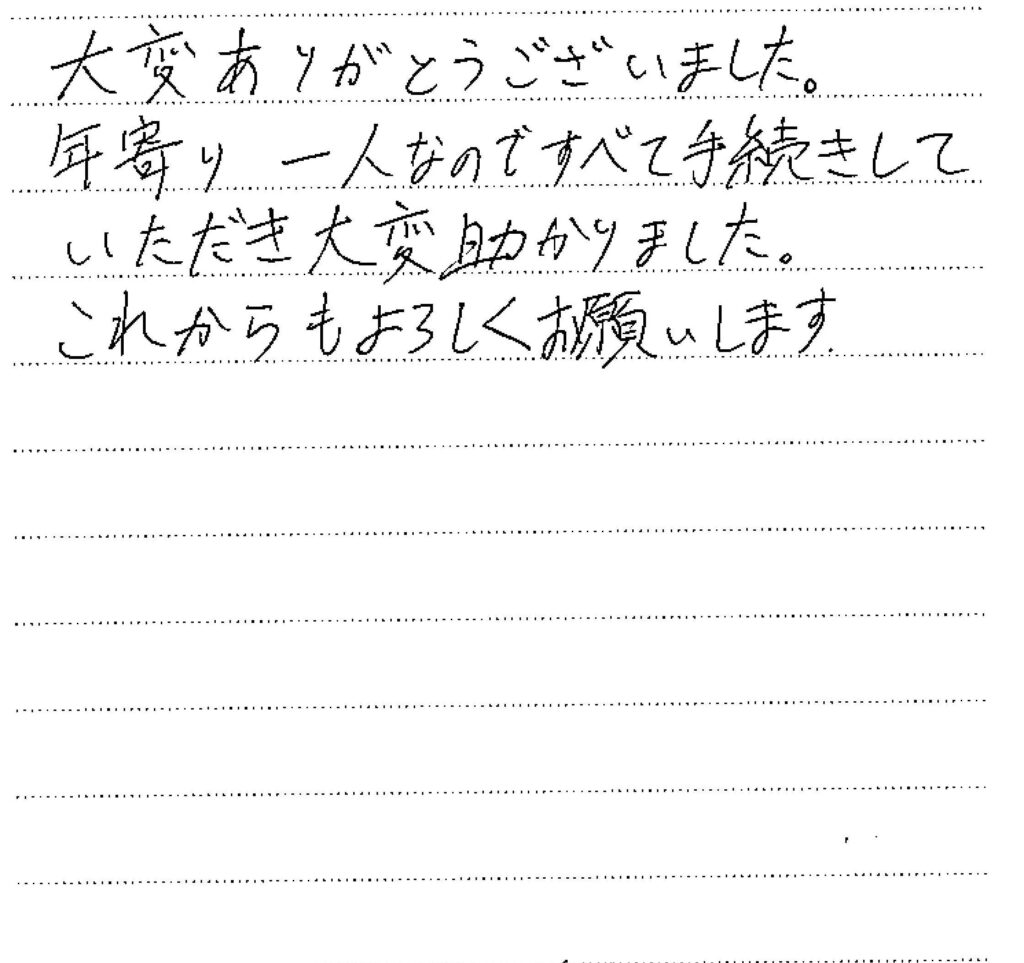 大変ありがとうございました。
年寄り 一人なのですべて手続きして
いただき大変助かりました。
これからもよろしくお願いします.